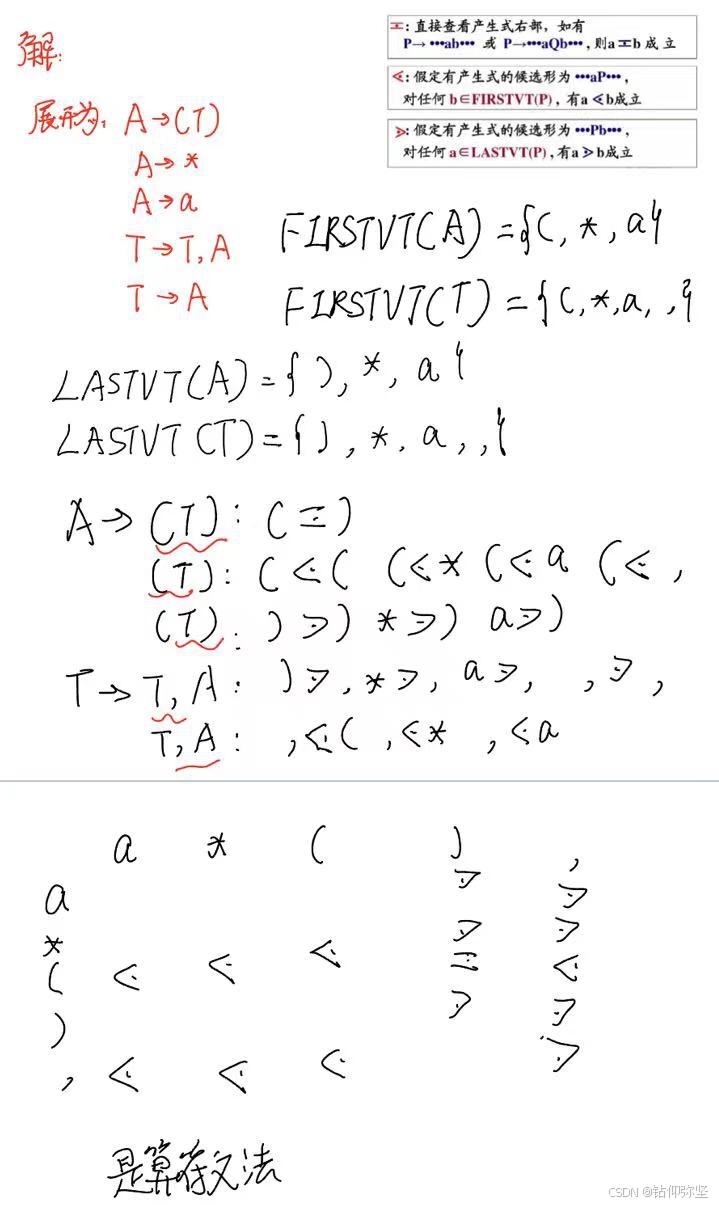 解:
≖: 直接查看产生式右部, 如有
P→ •••ab••• 或 P→•••aQb•••, 则a ≖ b 成 立
⋖: 假定有产生式的候选形为 •••aP•••,
对任何 b∈FIRSTVT(P), 有a ⋖ b成立
⋗: 假定有产生式的候选形为 •••Pb•••,
对任何 a∈LASTVT(P), 有a ⋗ b成立
展开为: A→(T)
A→*
A→a
T→T,A
T→A
FIRSTVT(A)={(,*,a}
FIRSTVT(T)={(,*,a,,}
LASTVT(A)={),*,a}
LASTVT(T)={),*,a,,}
A→(T): (≖)
(T): (⋖( (⋖* (⋖a (⋖,
(T): )⋗) *⋗) a⋗)
T→T,A: )⋗, *⋗, a⋗, ,⋗,
T,A: ,⋖( ,⋖* ,⋖a
a * ( ) ,
a ⋗ ⋗
* ⋗ ⋗
( ⋖ ⋖ ⋖ ≖ ⋖
) ⋗ ⋗
, ⋖ ⋖ ⋖ ⋗
是算符文法
CSDN @钻仰弥坚